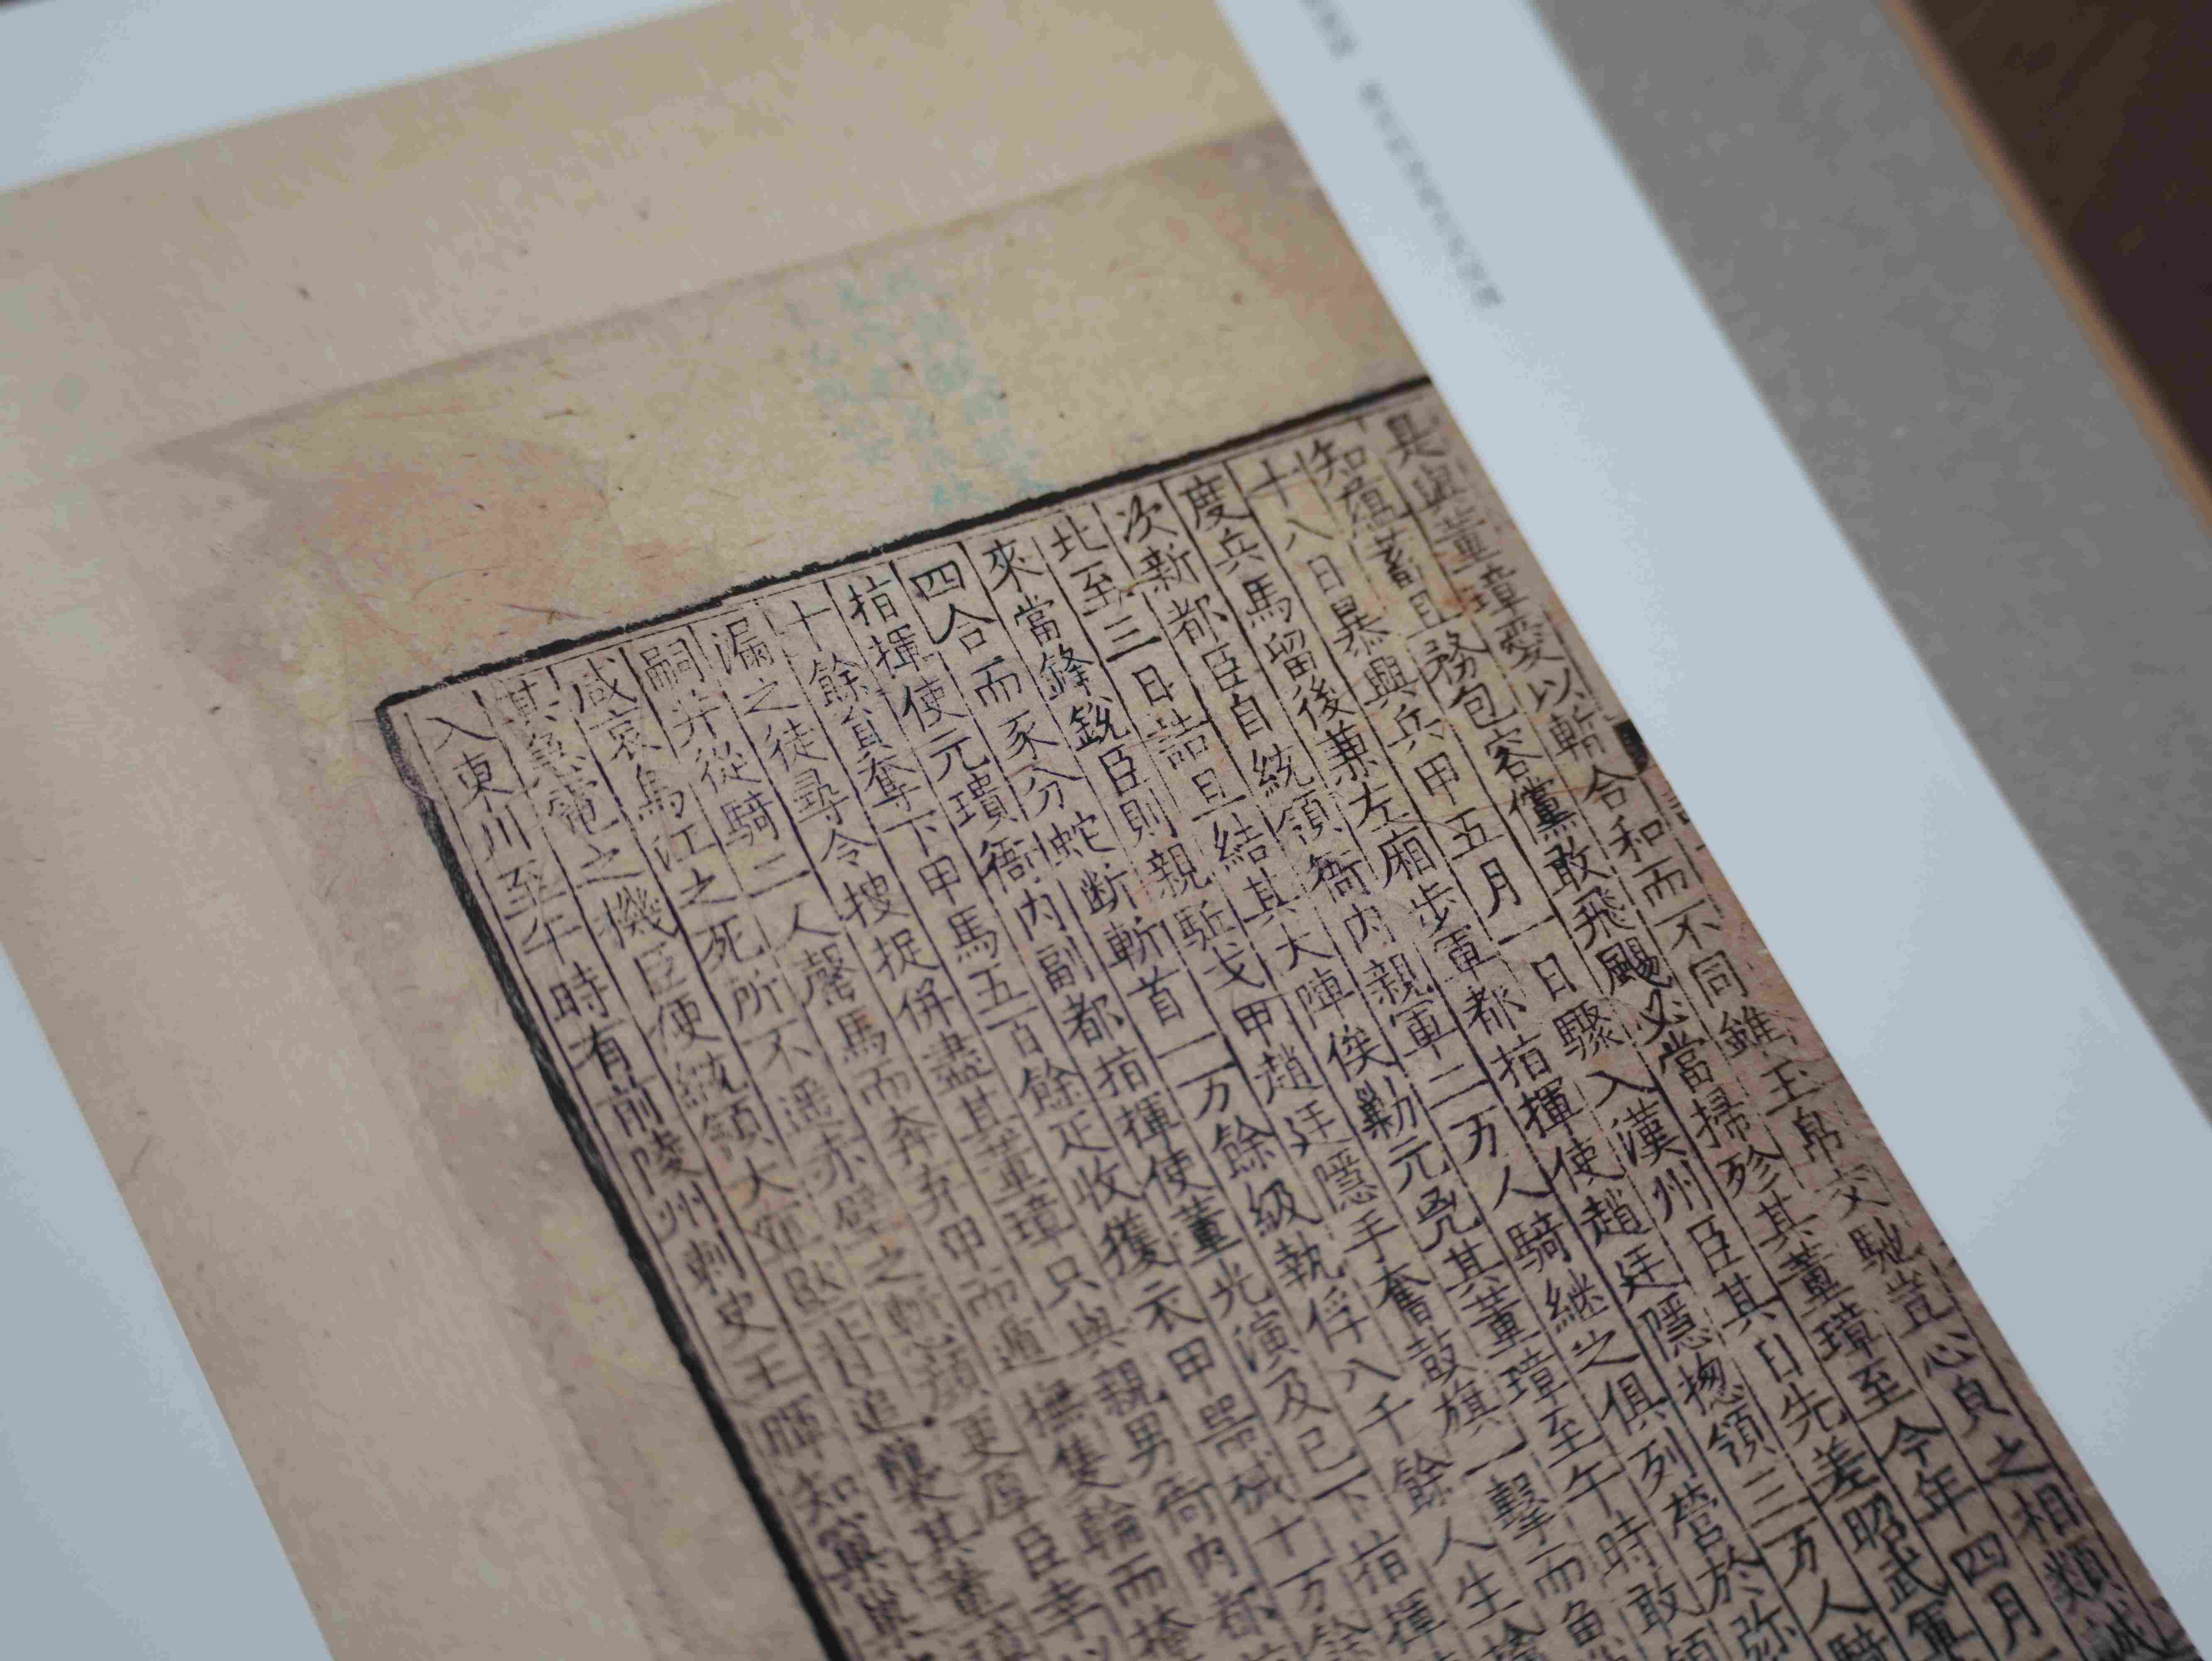 是與董璋爰以斬合和而不同雖玉帛交馳豈心貞之相類誠
知蕴蓄且務包容儻敢飛颺必當掃殄其董璋至今年四月
十八日暴興兵甲五月一日驟入漢州臣其日先差昭武軍
度兵馬留後兼左廂步軍都指揮使趙廷隱揔領三万人騎
次新都臣自統領衙内親軍二万人騎継之俱列營於弥
北至三日詰旦結其大陣俟勦元兇其董璋至午時敢領
來當鋒銳臣則親駈戈甲趙廷隱手奮鼓旗一擊而魚
四合而豕分蛇断斬首一万餘級執俘八千餘人生擒
指揮使元璝衙内副都指揮使董光演及已下指揮
十餘員奪下甲馬五百餘疋收獲衣甲器械十万餘
漏之徒尋令搜捉併盡其董璋只與親男衙内都
嗣并從騎二人罄馬而奔弃甲而遁撫隻輪而掩
咸哀烏江之死所不遇赤壁之慙顔更厚臣幸以
其急電之機臣便統領大軍追襲其董璋
入東川至午時有前陵州刺史王暉知窮